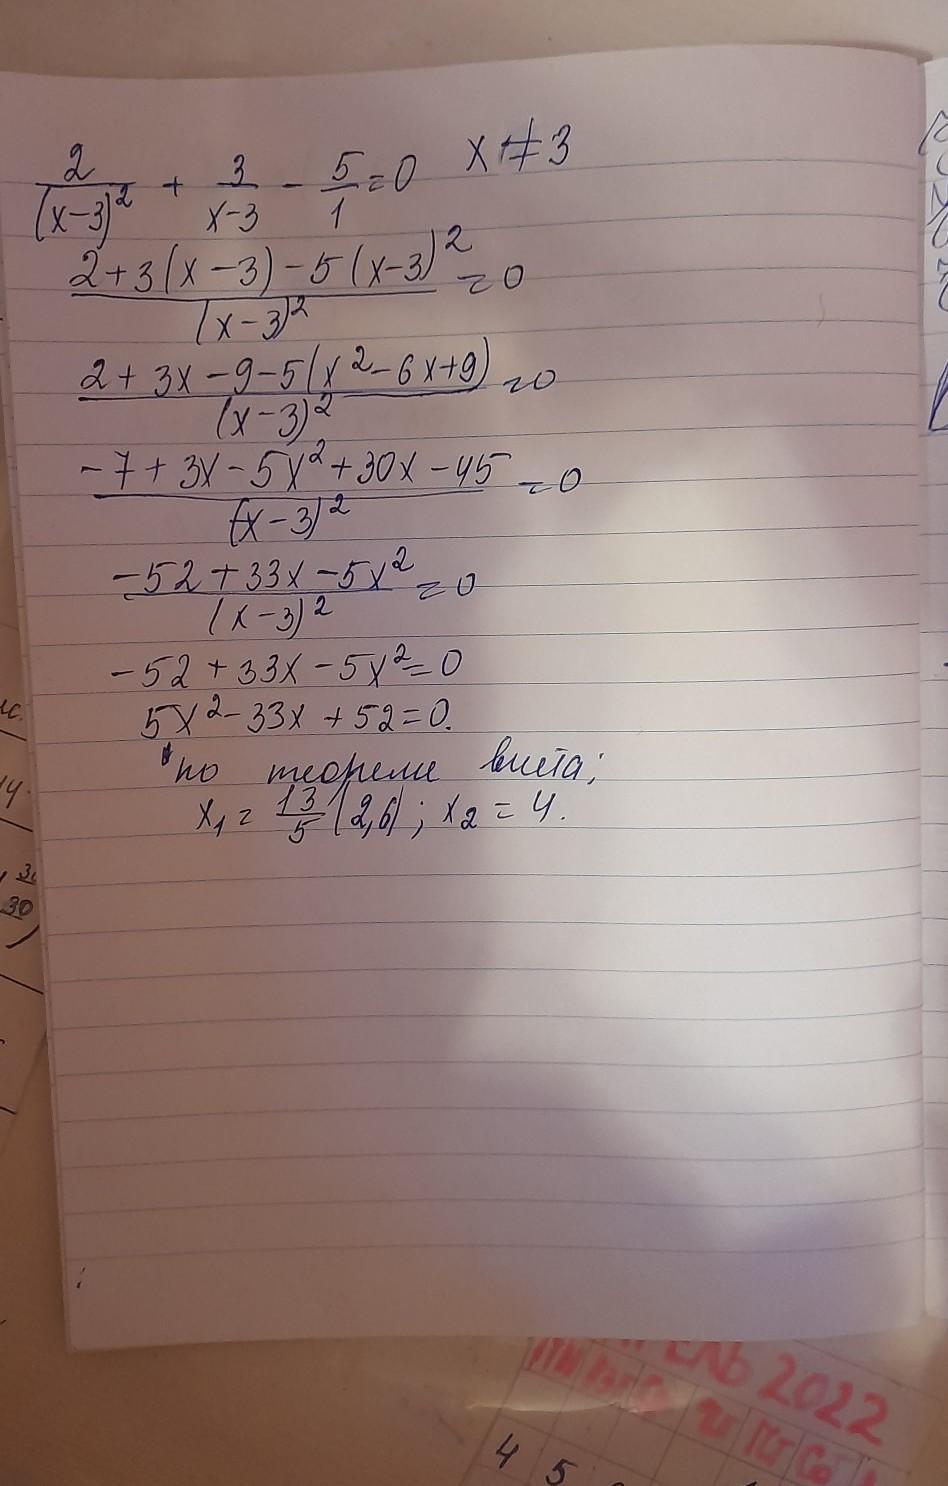 2/(x-3)² + 3/(x-3) - 5/1 = 0    x ≠ 3
(2+3(x-3)-5(x-3)²)/(x-3)² = 0
(2+3x-9-5(x²-6x+9))/(x-3)² = 0
(-7+3x-5x²+30x-45)/(x-3)² = 0
(-52+33x-5x²)/(x-3)² = 0
-52+33x-5x²=0
5x²-33x+52=0.
по теореме виета;
x₁ = 13/5 (2,6); x₂ = 4.
ЕЛЬ 2022
4 5
30